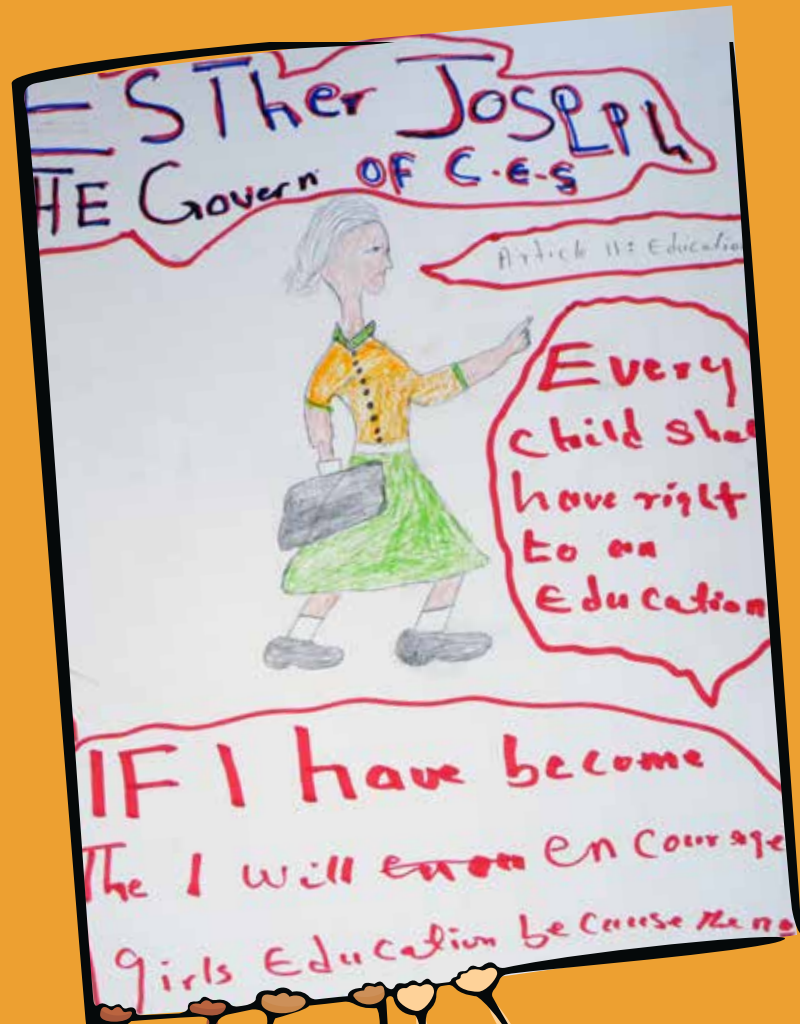 ESTher JosepH
THE Govern OF C.E.S
Article 11: Education
Every
child shal
have right
to an
Education
IF I have become
The I will encourage
girls Education because the